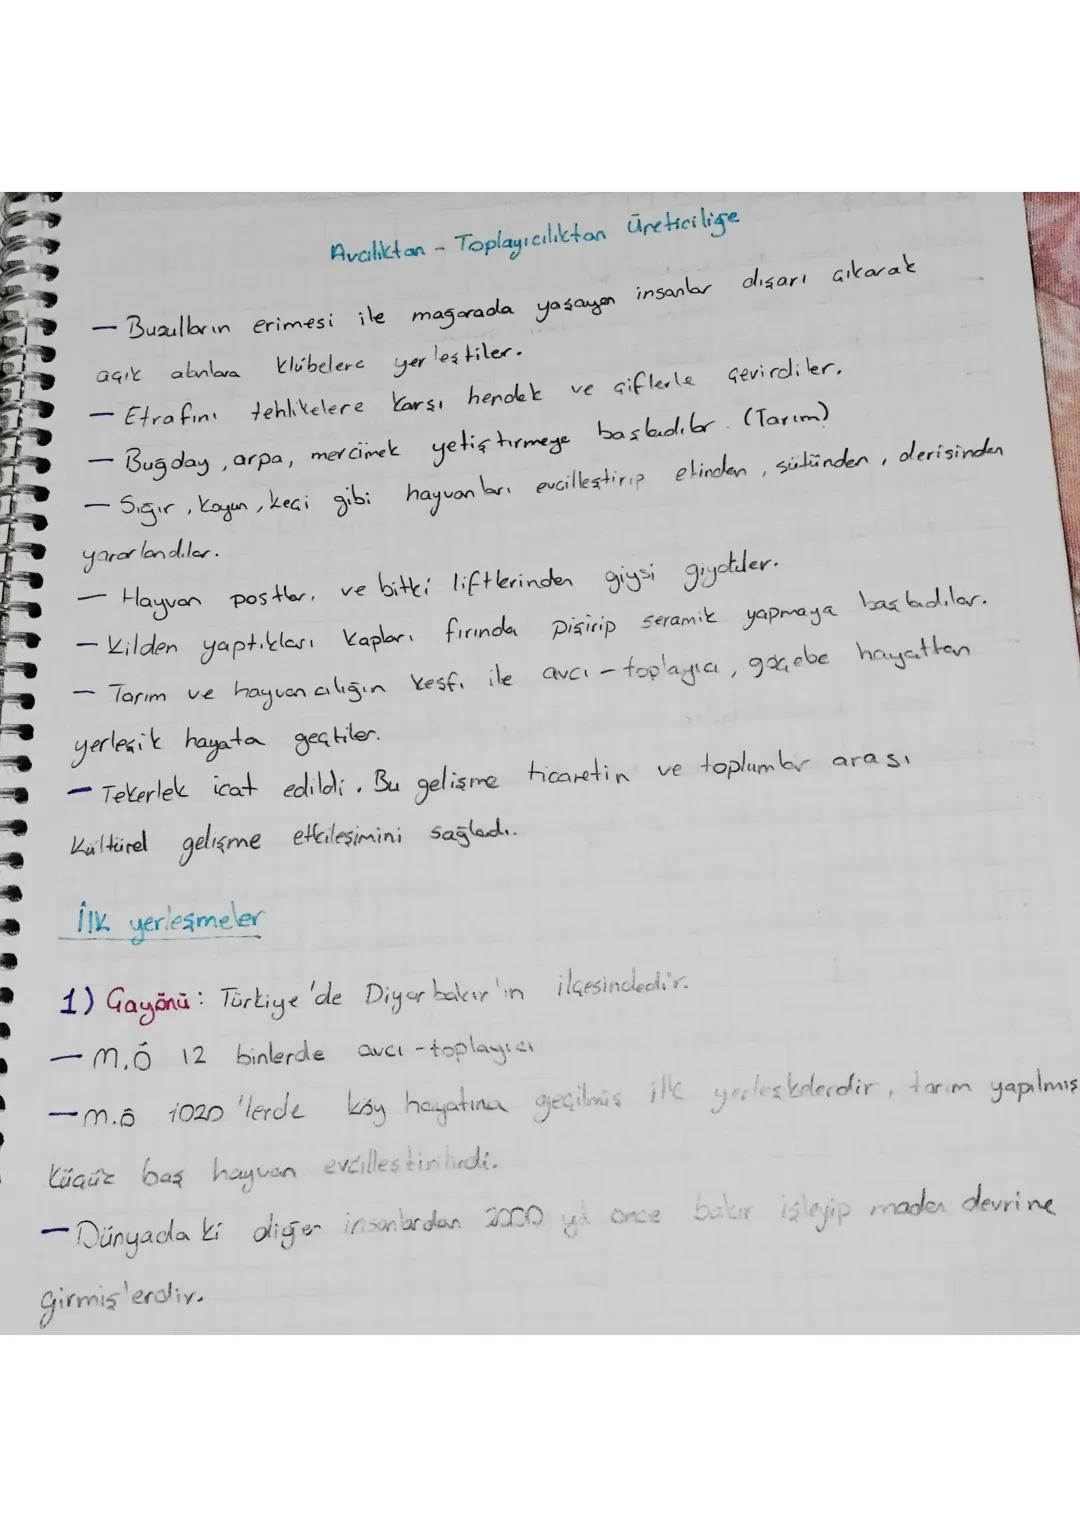 Avcılıktan - Toplayıcılıktan Üreticiliğe
— Buzulların erimesi ile mağarada yaşayan insanlar dışarı çıkarak
açık alanlara klübelere yerleştiler.
— Etrafını tehlikelere karşı hendek ve çiflerle çevirdiler.
— Buğday, arpa, mercimek yetiştirmeye başladılar. (Tarım)
— Sığır, koyun, keçi gibi hayvanları evcilleştirip etinden, sütünden, derisinden
yararlandılar.
— Hayvan postları, ve bitki liftlerinden giysi giydiler.
— Kilden yaptıkları kapları fırında pişirip seramik yapmaya başladılar.
— Tarım ve hayvancılığın keşfi ile avcı - toplayıcı, göçebe hayattan
yerleşik hayata geçtiler.
— Tekerlek icat edildi. Bu gelişme ticaretin ve toplumlar arası
kültürel gelişme etkileşimini sağladı.
İlk yerleşmeler
1) Çayönü: Türkiye'de Diyarbakır'ın ilçesindedir.
— M.Ö 12 binlerde avcı - toplayıcı
— M.Ö 1020'lerde köy hayatına geçilmiş ilk yerleşkelerdir, tarım yapılmış
küçük baş hayvan evcilleştirilirdi.
— Dünyada ki diğer insanlardan 2000 yıl önce bakır işleyip maden devrine
girmişlerdir.